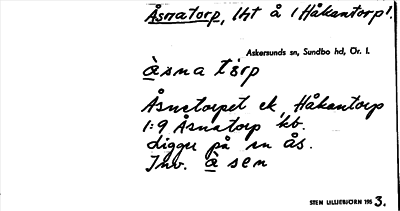 Åsnatorp, lht å 1 Håkantorp.
Askersunds sn, Sundbo hd, Ör. l.
àsna tårp
Åsnetorpet ek, Håkantorp
1:9 Åsnatorp kb.
Ligger på en ås.
Inv. à sen
STEN LILLIEBJÖRN 195 3.